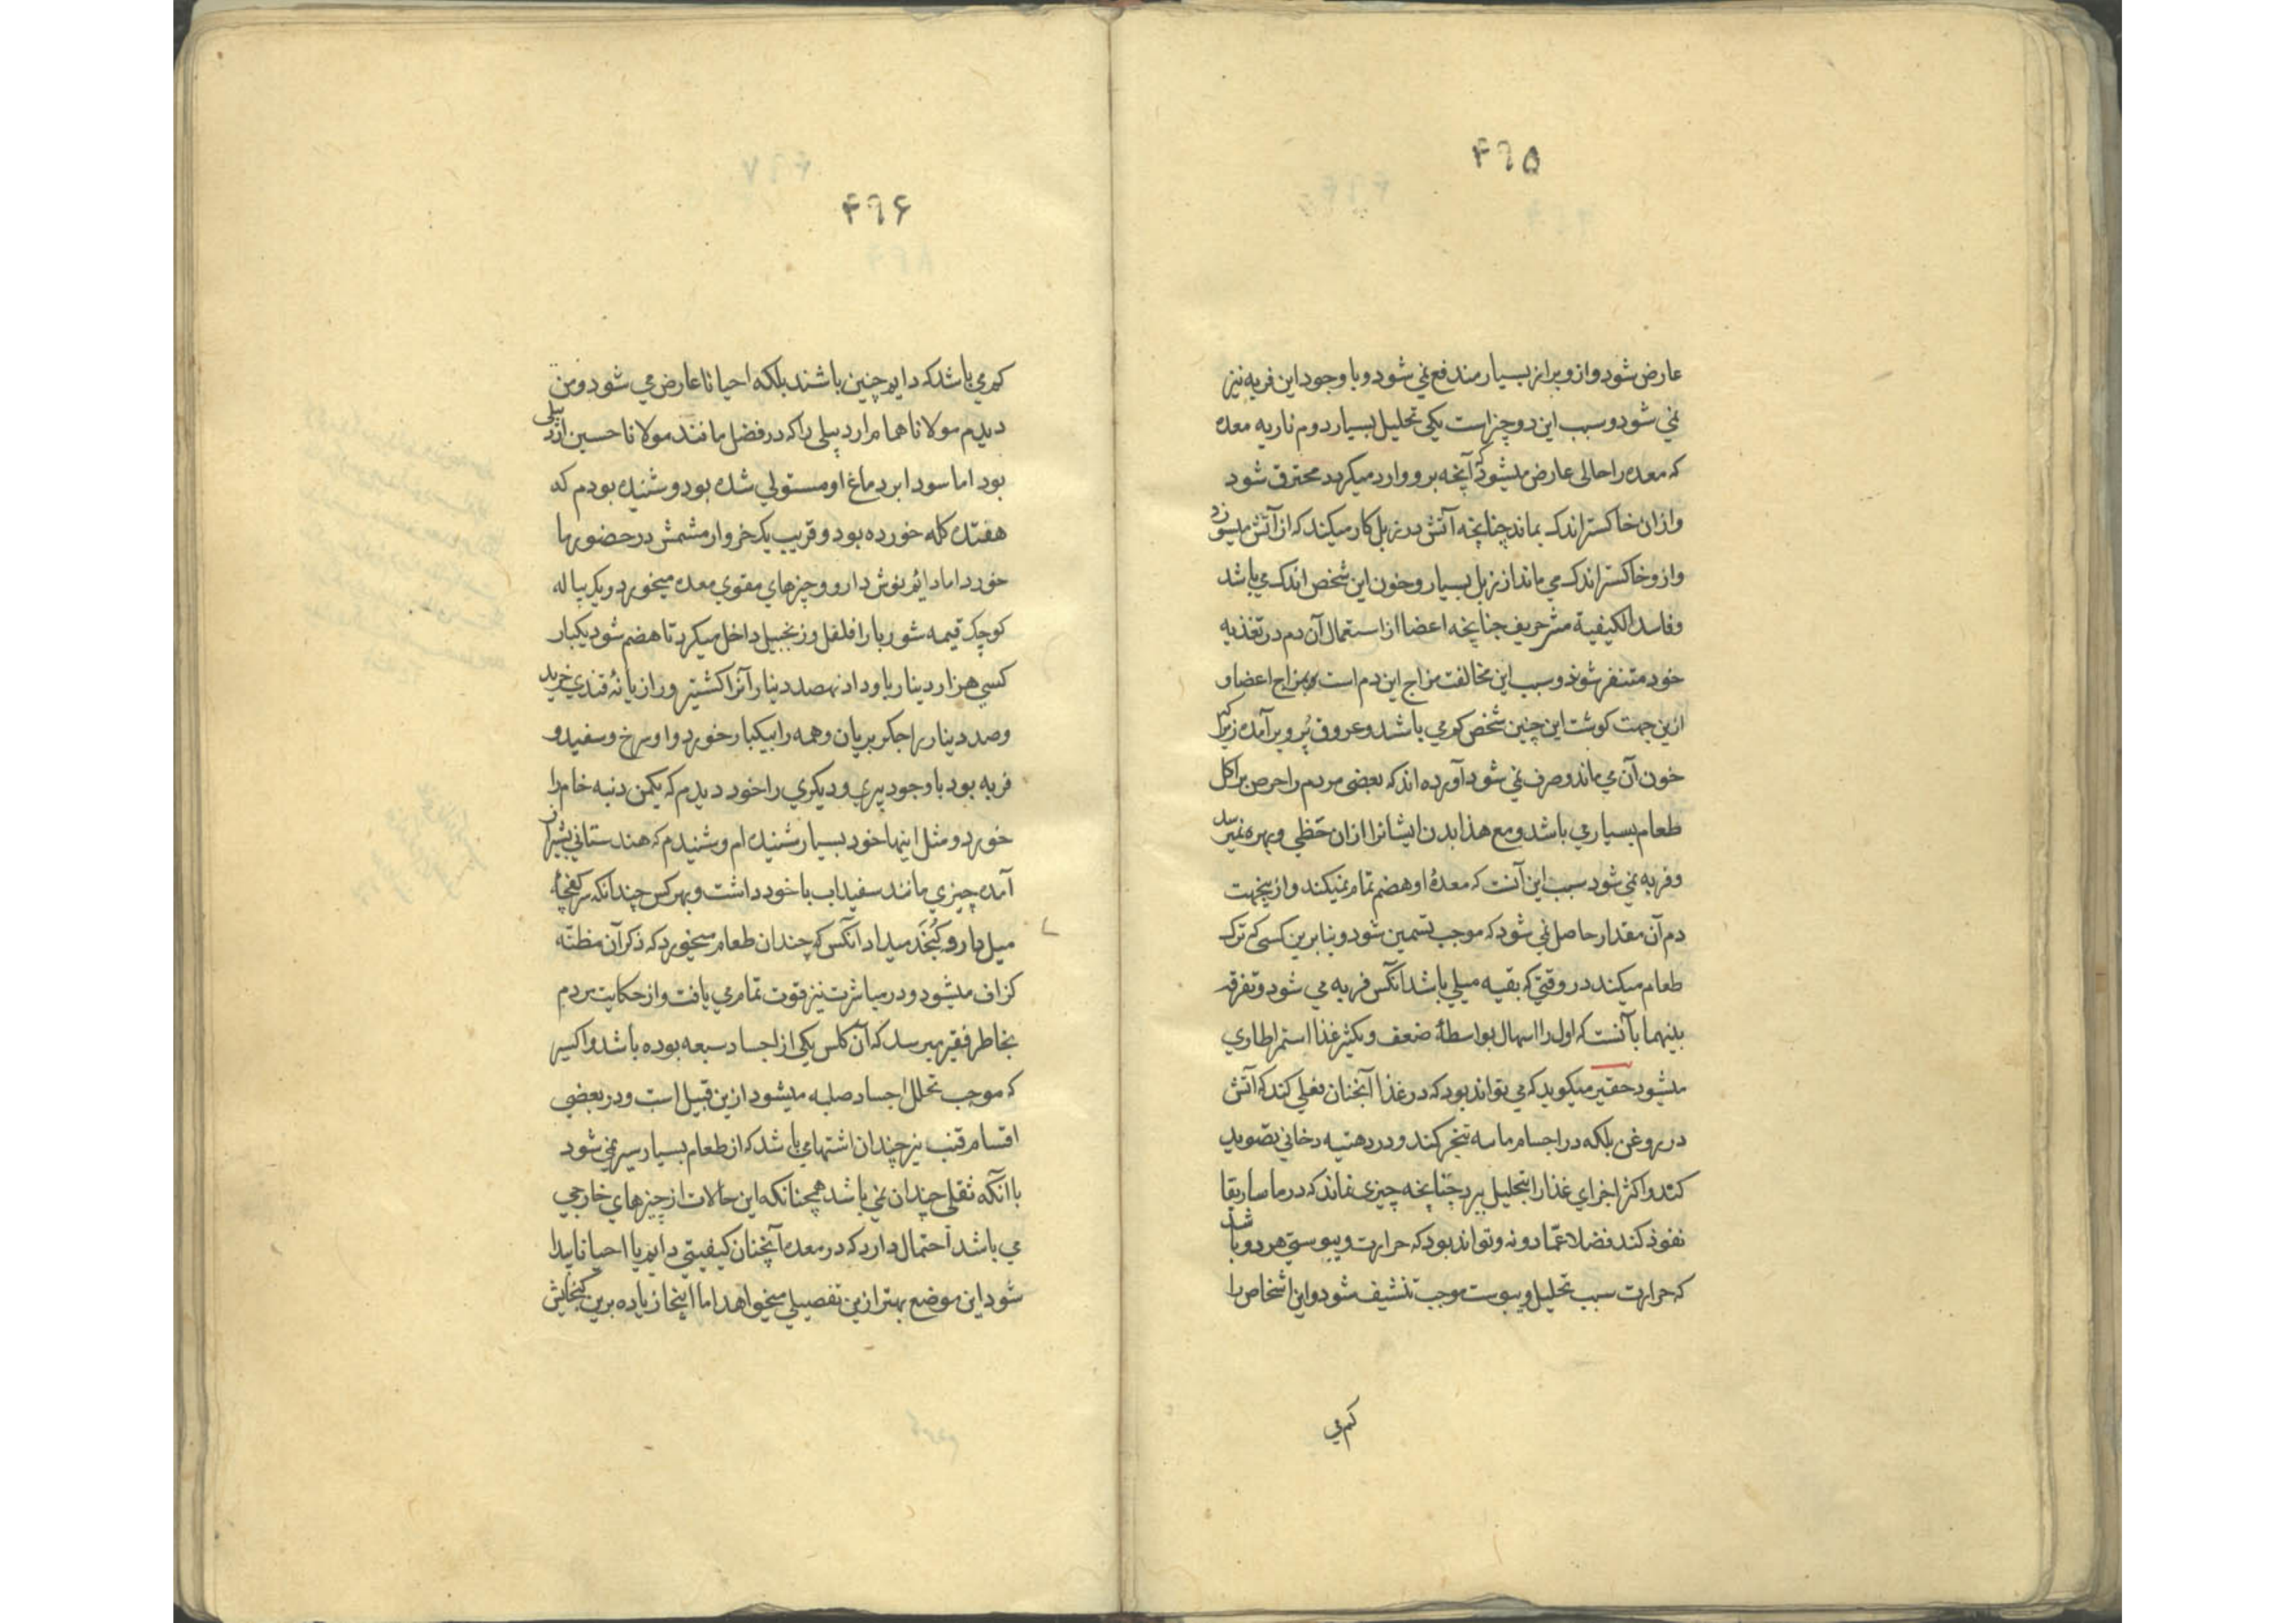 ۴۹۵
عارض شود و ازو براز بسیار مندفع نمی شود و با وجود این فربه نیز
نمی شود و سبب این دو چیز است یکی تحلیل بسیار دوم ناریه معده
که معده را حالی عارض میشود که آنچه برو وارد میکردد محترق شود
و ازان خاکستر اندک بماند چنانچه آتش در زبل کار میکند که از آتش میسوزد
و ازو خاکستر اندک می ماند از زبل بسیار و خون این شخص اندک می باشد
و فاسد الکیفیة حریف چنانچه اعضا از استعمال آن دم در تغذیه
خود متنفر شوند و سبب این مخالفت مزاج این دم است بمزاج اعضا و
ازین جهت کوشت این چنین شخص کم می باشد و عروق پُر و برآمده زیرا که
خون آن می ماند و صرف نمی شود آورده اند که بعضی مردم را حرص بر اکل
طعام بسیار می باشد و مع هذا بدن ایشانرا ازان حظی و بهره نمیرسد
و فربه نمی شود سبب این آنست که معدهٔ او هضم تمام نمیکند و ازینجهت
دم آن مقدار حاصل نمی شود که موجب تسمین شود و بنابرین کسی که ترک
طعام میکند در وقتی که بقیه میلی باشد آنکس فربه می شود و تفرقه
بینهما بآنست که اول را اسهال بواسطهٔ ضعف و بکثیر غذا استمرا طاری
میشود حقیر میکوید که می تواند بود که در غذا آنچنان فعلی کند که آتش
در روغن بلکه در اجسام ماسه تبخر کند و در دهنیه دخانی تصوید
کند و اکثر اجزای غذا را بتحلیل برد چنانچه چیزی نماند که در ماساریقا
نفوذ کند فضلا عمّا دونه و تواند بود که حرارت و یبوستی هر دو باشد
که حرارت سبب تحلیل و یبوست موجب تنشیف شود و این اشخاص را
کم می
۴۹۶
کم می باشد که دایم چنین باشند بلکه احیانا عارض می شود و من
دیدم مولانا همام اردبیلی را که در فضل مانند مولانا حسین اردبیلی
بود اما سودا بر دماغ او مستولی شده بود و شنیده بودم که
هفتده کله خورده بود و قریب یک خروار مشمش در حضور ما
خورد اما دائم بنوش دارو و چیزهای مقوی معده میخورد و یک پیاله
کوچک قیمه شوربا را فلفل و زنجبیل داخل میکرد تا هضم شود یکبار
کسی هزار دینار باو داد نهصد دینار آنرا کشنیز و رازیانهٔ قندی خرید
و صد دینار را جکر بریان و همه را بیکبار خورد و او سرخ و سفید و
فربه بود با وجود پیری و دیکری را خود دیدم که یکمن دنبه خام را
خورد و مثل اینها خود بسیار شنیده ام و شنیدم که هندستانی بشیراز
آمده چیزی مانند سفیداب با خود داشت و بهر کس چندانکه سر کفچهٔ
میل دارو کُنجد میداد آنکس که چندان طعام میخورد که ذکر آن مظنّه
کزاف میشود و در مباشرت نیز قوت تمام می یافت و از حکایت مردم
بخاطر فقیر میرسد که آن کلس یکی از اجساد سبعه بوده باشد و اکسیر
که موجب تحلل اجساد صلبه میشود ازین قبیل است و در بعضی
اقسام قنب نیز چندان اشتها می باشد که از طعام بسیار سیر نمی شود
با آنکه ثقلی چندان نمی باشد همچنانکه این حالات از چیزهای خارجی
می باشد احتمال دارد که در معده آنچنان کیفیتی دایم یا احیانا پیدا
شود این موضع بهتر ازین تفصیلی میخواهد اما اینجا زیاده برین کنجایش